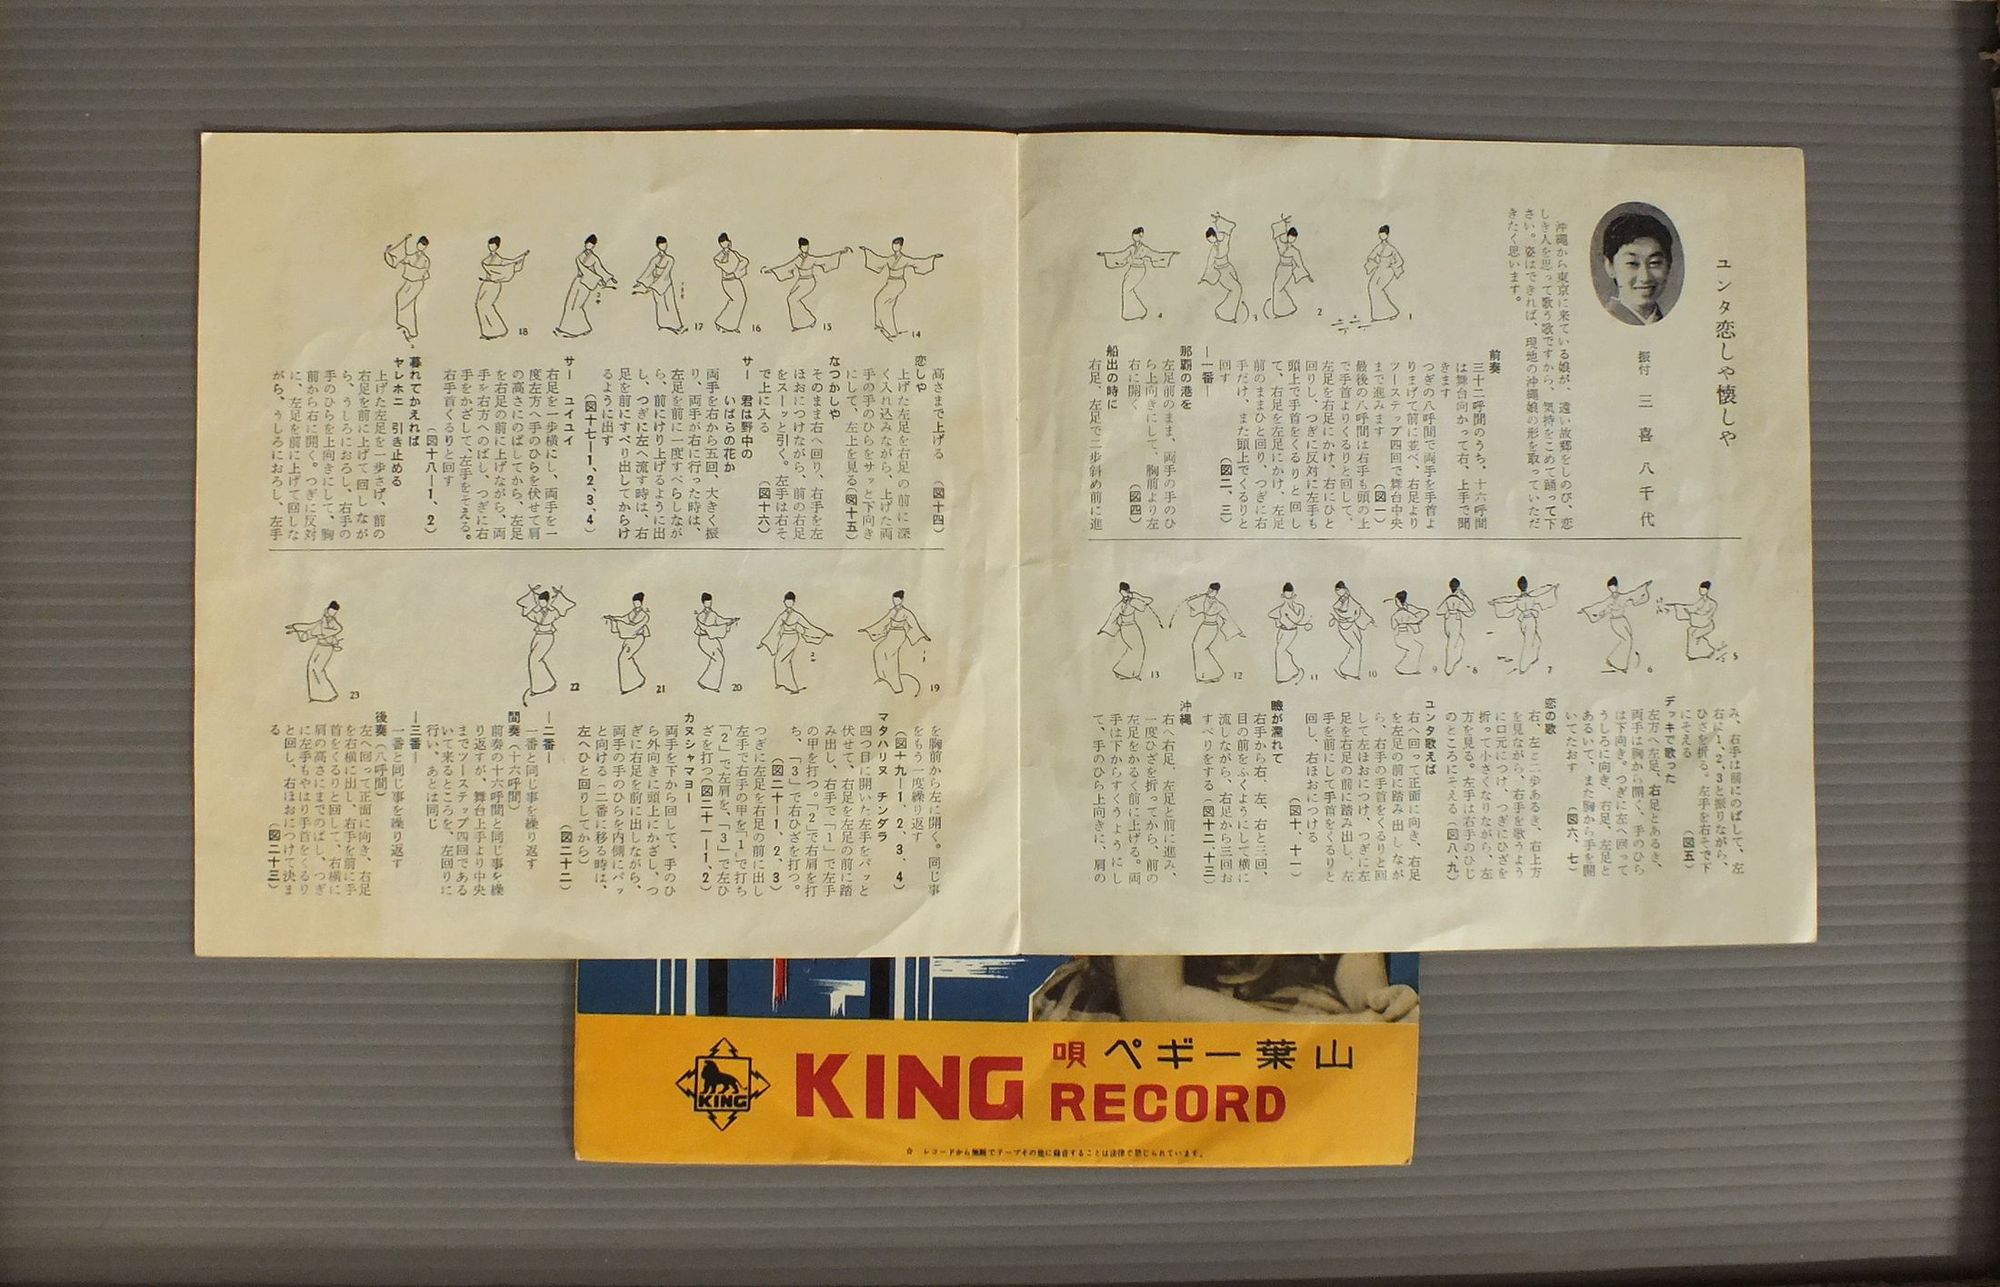 ユンタ恋しや懐しや
振付 三喜八千代
沖縄から東京に来ている娘が、遠い故郷をしのび、恋
しき人を思って歌う歌ですから、気持をこめて踊って下
さい。姿はできれば、現地の沖縄娘の形を取っていただ
きたく思います。
前奏
三十二呼間のうち、十六呼間
は舞台向かって右、上手で聞
きます
つぎの八呼間で両手を手首よ
りまげて前に並べ、右足より
ツーステップ四回で舞台中央
まで進みます (図一)
最後の八呼間は右手も頭の上
で手首よりくるりと回して、
左足を右足にかけ、右にひと
回りし、つぎに反対に左手も
頭上で手首をくるりと回し
て、右足を左足にかけ、左足
前のままひと回り、つぎに右
手だけ、また頭上でくるりと
回す (図二、三)
―一番―
那覇の港を
左足前のまま、両手の手のひ
ら上向きにして、胸前より左
右に開く (図四)
船出の時に
右足、左足で二歩斜め前に進
1
2
3
4
み、右手は前にのばして、左
右に1、2、3と振りながら、
ひざを折る。左手を右そで下
にそえる (図五)
デッキで歌った
左方へ左足、右足とあるき、
両手は胸から開く、手のひら
は下向き。つぎに左へ回って
うしろに向き、右足、左足と
あるいて、また胸から手を開
いてたおす (図六、七)
恋の歌
右、左と二歩あるき、右上方
を見ながら、右手を歌うよう
に口元につけ、つぎにひざを
折って小さくなりながら、左
方を見る。左手は右手のひじ
のところにそえる(図八、九)
ユンタ歌えば
右へ回って正面に向き、右足
を左足の前に踏み出しなが
ら、右手の手首をくるりと回
して左ほおにつけ、つぎに左
足を右足の前に踏み出し、左
手を前にして手首をくるりと
回し、右ほおにつける
(図十、十一)
瞼が濡れて
右手から右、左、右と三回、
目の前をふくようにして横に
流しながら、右足から三回お
すべりをする(図十二、十三)
沖縄
右へ右足、左足と前に進み、
一度ひざを折ってから、前の
左足をかるく前に上げる。両
手は下からすくうようにし
て、手のひら上向きに、肩の
5
6
7
8
9
10
11
12
13
高さまで上げる (図十四)
恋しや
上げた左足を右足の前に深
く入れ込みながら、上げた両
手の手のひらをサッと下向き
にして、左上を見る(図十五)
なつかしや
そのまま右へ回り、右手を左
ほおにつけながら、前の右足
をスーッと引く。左手は右そ
で上に入る (図十六)
サー 君は野中の
いばらの花か
両手を右から五回、大きく振
り、両手が右に行った時は、
左足を前に一度すべらしなが
ら、前にけり上げるように出
し、つぎに左へ流す時は、右
足を前にすべり出してからけ
るように出す
(図十七―1、2、3、4)
サー ユイユイ
右足を一歩横にし、両手を一
度左方へ手のひらを伏せて肩
の高さにのばしてから、左足
を右足の前に上げながら、両
手を右方へのばし、つぎに右
手をかざして、左手をそえる。
右手首くるりと回す
(図十八―1、2)
暮れてかえれば
ヤレホニ 引き止める
上げた左足を一歩さげ、前の
右足を前に上げて回しなが
ら、うしろにおろし、右手の
手のひらを上向きにして、胸
前から右に開く。つぎに反対
に、左足を前に上げて回しな
がら、うしろにおろし、左手
14
15
16
17
18
を胸前から左に開く。同じ事
をもう一度繰り返す
(図十九―1、2、3、4)
マタハリヌ チンダラ
四つ目に開いた左手をパッと
伏せて、右足を左足の前に踏
み出し、右手で「1」で左手
の甲を打つ。「2」で右肩を打
ち、「3」で右ひざを打つ。
(図二十―1、2、3)
つぎに左足を右足の前に出し
左手で右手の甲を「1」で打ち
「2」で左肩を、「3」で左ひ
ざを打つ(図二十一―1、2)
カヌシャマヨー
両手を下から回して、手のひ
ら外向きに頭上にかざし、つ
ぎに右足を前に出しながら、
両手の手のひらを内側にパッ
と向ける(二番に移る時は、
左へひと回りしてから)
(図二十二)
―二番―
一番と同じ事を繰り返す
間奏(十六呼間)
前奏の十六呼間と同じ事を繰
り返すが、舞台上手より中央
までツーステップ四回である
いて来るところを、左回りに
行い、あとは同じ
―三番―
一番と同じ事を繰り返す
後奏(八呼間)
左へ回って正面に向き、右足
を右横に出し、右手を前に手
首をくるりと回して、右横に
肩の高さにまでのばし、つぎ
に左手もやはり手首をくるり
と回し、右ほおにつけて決ま
る (図二十三)
19
20
21
22
23
KING
KING
唄 ペギー葉山
RECORD
☆ レコードから無断でテープその他に録音することは法律で禁じられています。